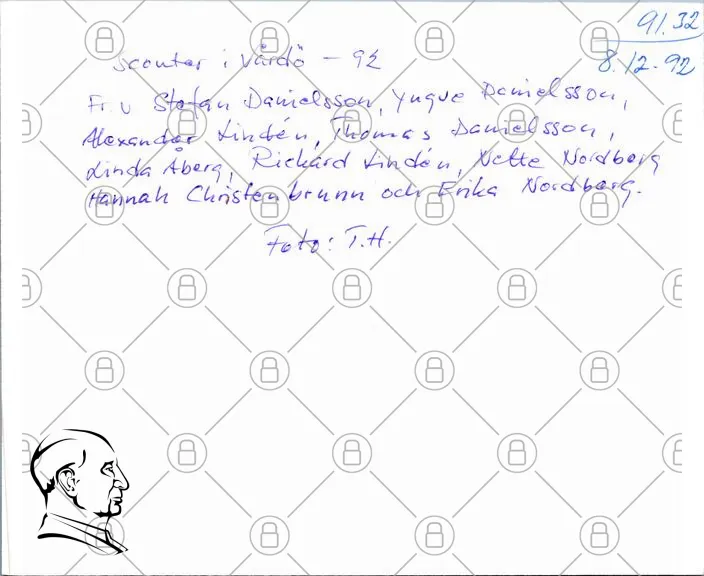 91.32
8.12-92
Scouter i Vårdö - 92
Fr. v Stefan Danielsson, Yngve Danielsson,
Alexander Lindén, Thomas Danielsson,
Linda Åberg, Rickard Lindén, Nette Nordberg
Hannah Christenbrunn och Erika Nordberg.
Foto: T.H.